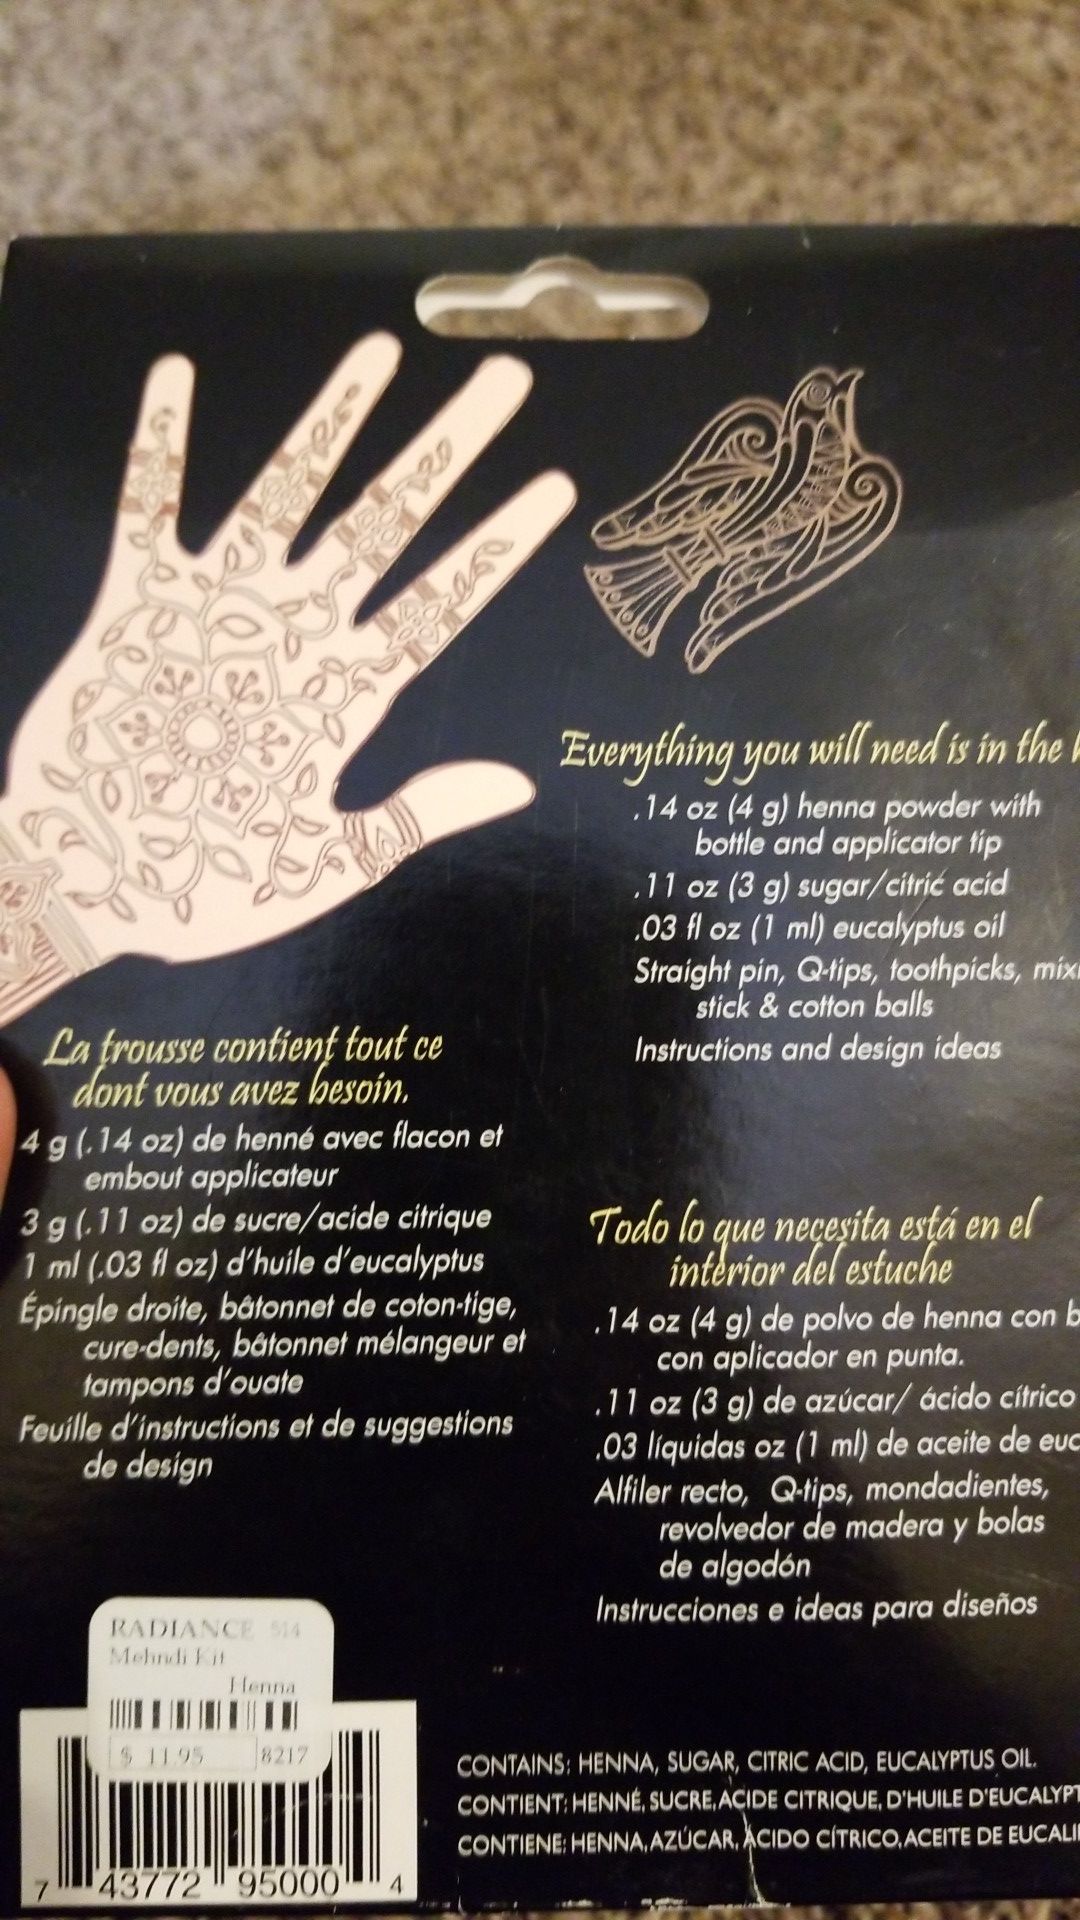 Everything you will need is in the
.14 oz (4 g) henna powder with
bottle and applicator tip
.11 oz (3 g) sugar/citric acid
.03 fl oz (1 ml) eucalyptus oil
Straight pin, Q-tips, toothpicks,
stick & cotton balls
Instructions and design ideas
La trousse contient tout ce
dont vous avez besoin.
4 g (.14 oz) de henné avec flacon et
embout applicateur
3 g (.11 oz) de sucre/acide citrique
1 ml (.03 fl oz) d'huile d'eucalyptus
Épingle droite, bâtonnet de coton-tige,
cure-dents, bâtonnet mélangeur et
tampons d'ouate
Feuille d'instructions et de suggestions
de design
Todo lo que necesita está en el
interior del estuche
.14 oz (4 g) de polvo de henna con
con aplicador en punta.
.11 oz (3 g) de azúcar/ ácido cítrico
.03 líquidas oz (1 ml) de aceite de
Alfiler recto, Q-tips, mondadientes,
revolvedor de madera y bolas
de algodón
Instrucciones e ideas para diseños
RADIANCE 514
Mehndi Kit
Henna
$ 11.95 8217
7 43772 95000 4
CONTAINS: HENNA, SUGAR, CITRIC ACID, EUCALYPTUS OIL.
CONTIENT: HENNÉ, SUCRE, ACIDE CITRIQUE, D'HUILE
CONTIENE: HENNA, AZÚCAR, ÁCIDO CÍTRICO, ACEITE DE